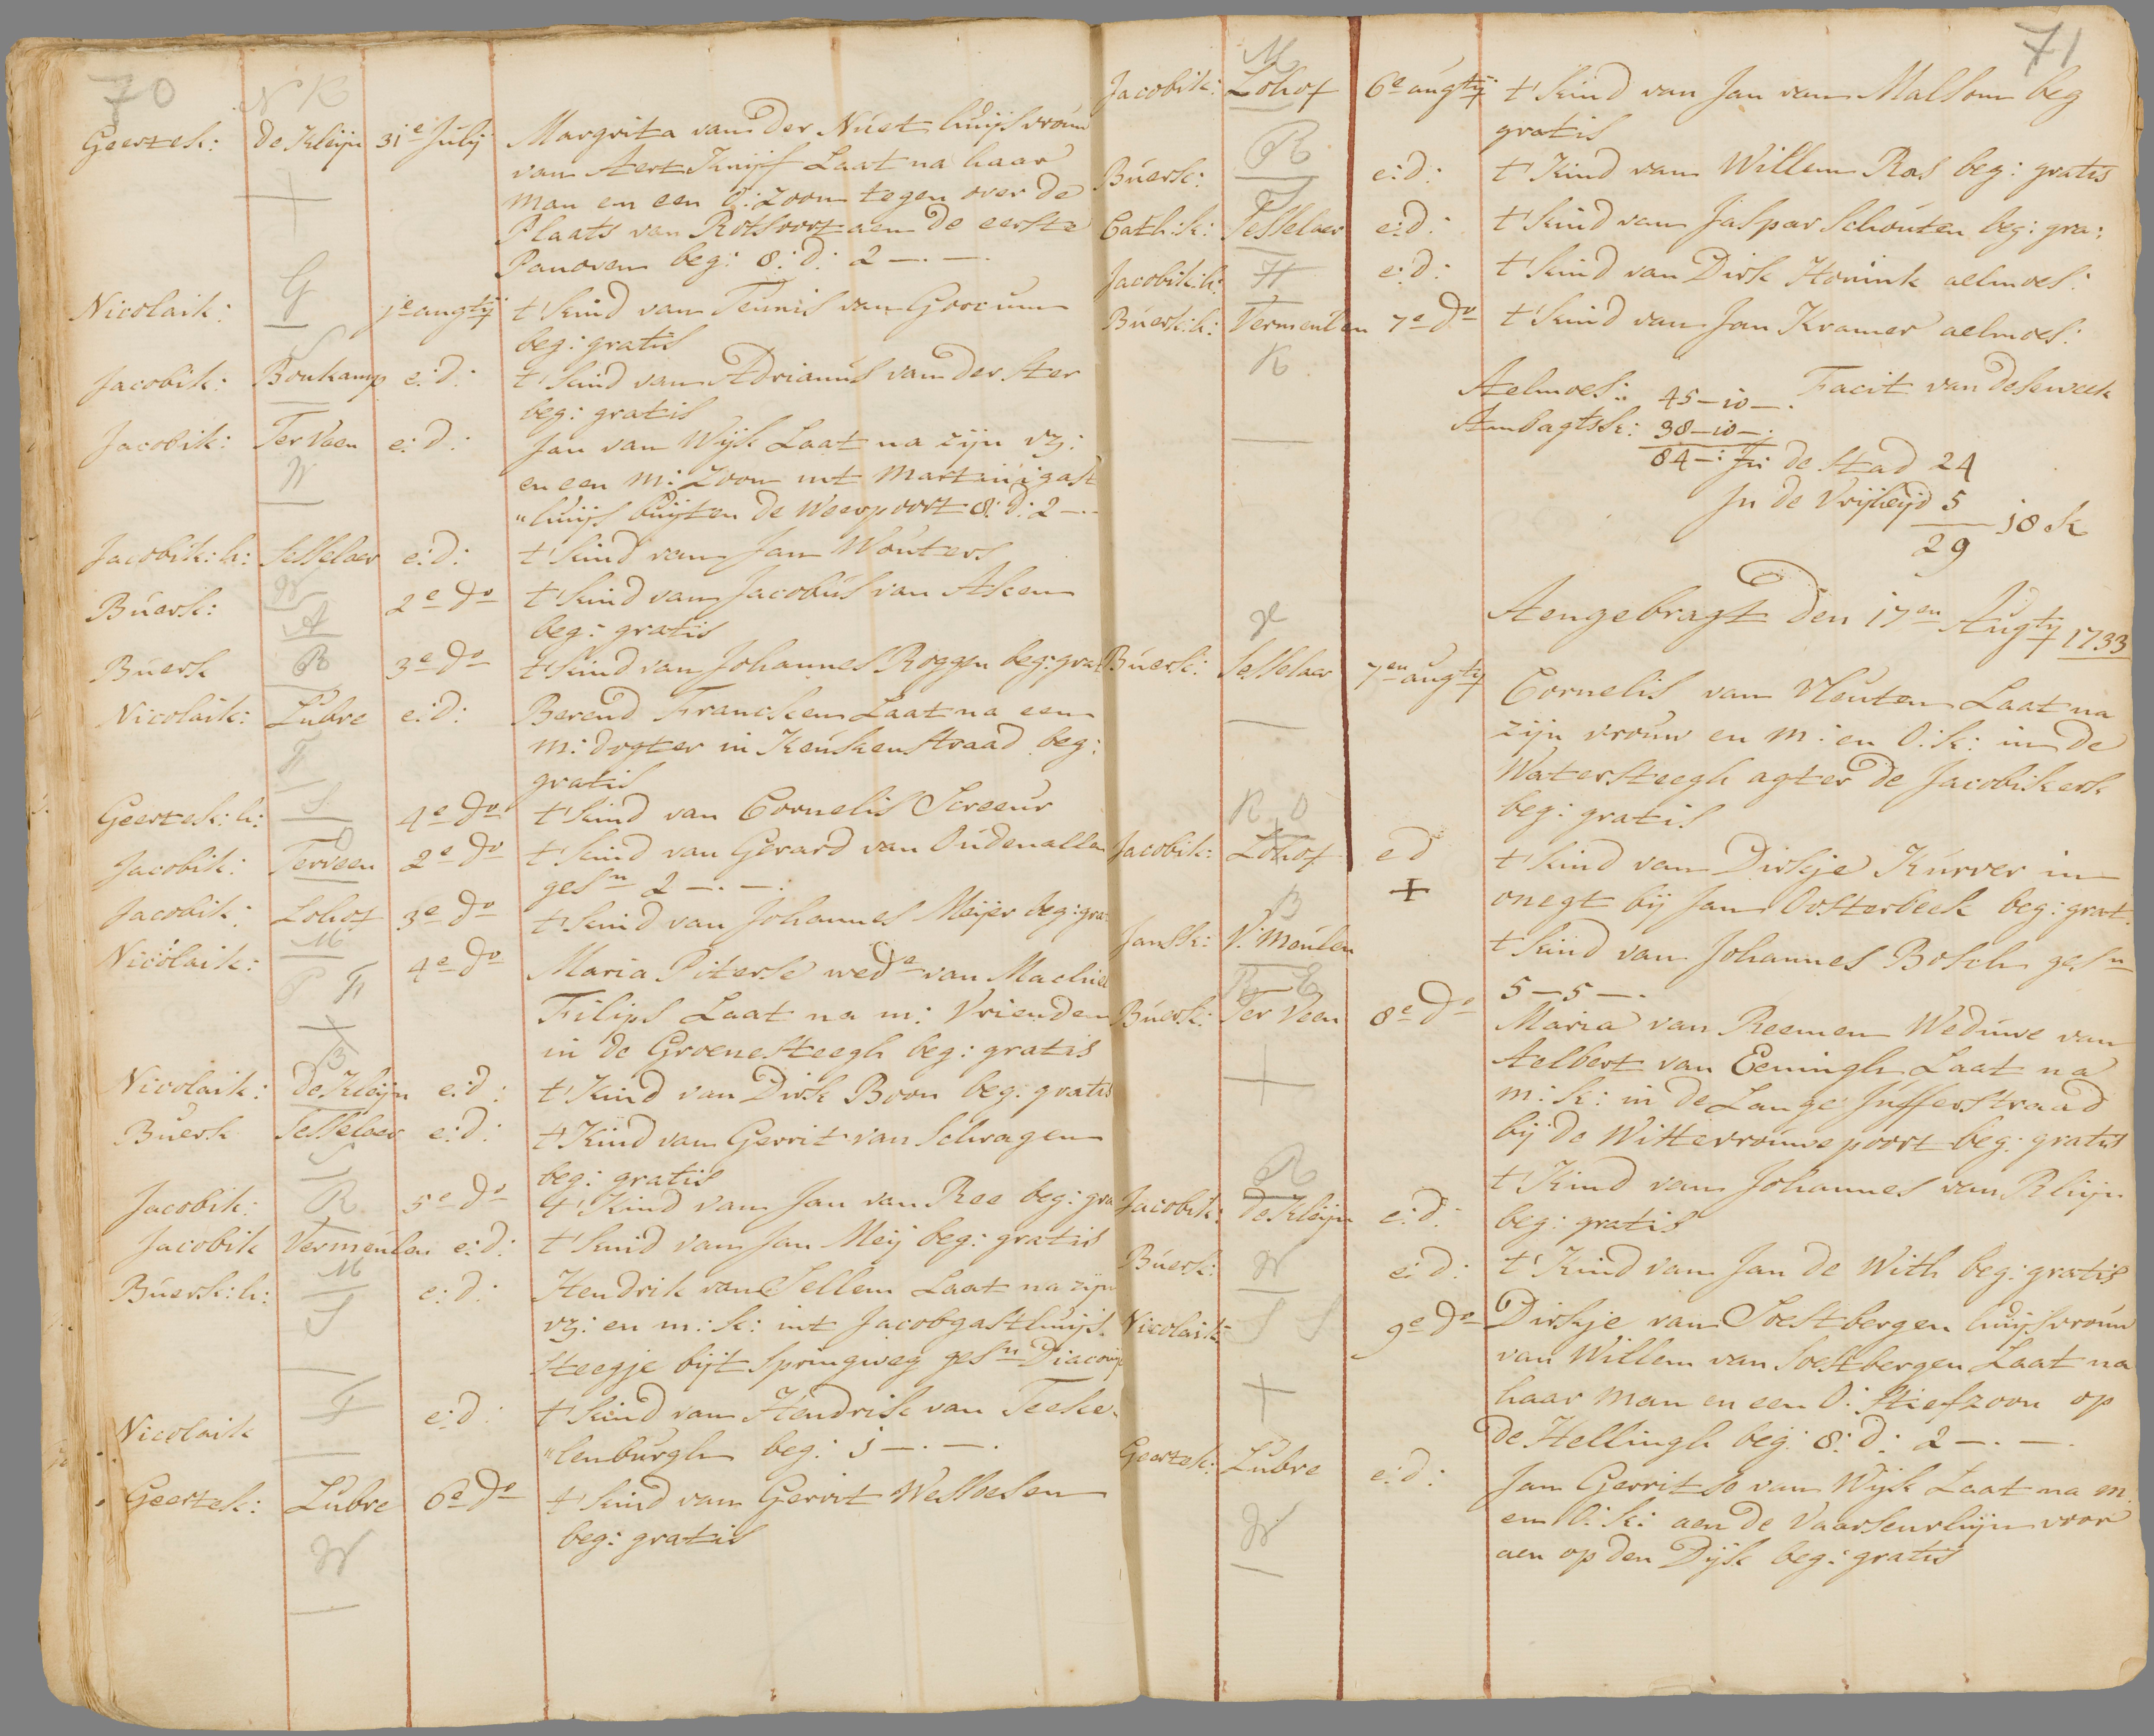 70
N K
Geertek: de Kleijn 31e Julij Margrita van der Nust huijsvrouw
van Aert Knijf Laat na haar
man en een O: Zoon tegen over de
Plaats van Rotsoort aen de eerste
Panoven beg: 8: d: 2 —. —.
Nicolaik: G 1e augty t' kind van Teunis van Gorcum
beg: gratis
Jacobik: Bonkamp e: d: t' kind van Adrianus van der Ster
beg: gratis
Jacobik: Ter Veen e: d: Jan van Wijk Laat na zijn vr:
W en een m: Zoon int Martini gast
"huijs buijten de Weerpoort 8: d: 2 —. —
Jacobik: k: Tesselaer e: d: t' kind van Jan Wouters
W
Buerk: A 2e do t' kind van Jacobus van Asken
beg: gratis
Buerk R 3e do t' kind van Johannes Roggen beg: gra
Nicolaik: Lubre e: d: Berend Francken Laat na een
F m: dogter in Keukenstraad beg:
gratis
Geertek: k: S 4e do t' kind van Cornelis Screeur
Jacobik: Terveen 2e do t' kind van Gerard van Oudenalle
gesn 2 —. —.
Jacobik: Lohof 3e do t' kind van Johannes Meijer beg: gra
M
Nicolaik: P F 4e do Maria Piterse wede van Machiel
Filips Laat na m: Vrienden
in de Groenesteegh beg: gratis
B
Nicolaik: de Kleijn e: d: t' Kind van Dirk Boon beg: gratis
Buerk Tesselaer e: d: t' Kind van Gerrit van Schragen
S beg: gratis
Jacobik: R 5e do t' Kind van Jan van Ree beg: gra
Jacobik Vermeulen e: d: t' kind van Jan Meij beg: gratis
M
Buerk: k: S e: d: Hendrik van Sellem Laat na zijn
vr: en m: k: int Jacobgasthuijs
steegje bijt Springweg gesn Diaconij
Nicolaik T e: d: t' kind van Hendrik van Teeke
"lenburgh beg: 1 —. —.
Geertek: Lubre 6e do t' kind van Gerrit Wesselsen
W beg: gratis
71
M
Jacobik: Lohof 6e augty t' kind van Jan van Malsom beg
gratis
Buerk: R e: d: t' Kind van Willem Ras beg: gratis
S
Cath: k: Tesselaer e: d: t' kind van Jaspar Schouten beg: gra:
Jacobik: k: H e: d: t' kind van Dirk Honink aelmoes:
Buerk: k: Vermeulen 7e do t' kind van Jan Kramer aelmoes:
K
Aelmoes: 45 — 10 —. Facit van dese week
Ambagtsk: 38 — 10 —.
84 —: In de Stad 24
In de Vrijheijd 5
29 18 k
Aengebragt den 17en Augty 1733
Buerk: Tesselaer 7en augty Cornelis van Vleuten Laat na
zijn vrouw en m: en O: k: in de
Watersteegh agter de Jacobikerk
beg: gratis
K O
Jacobik: Lohof e d t' kind van Dirkje Kurver in
+ onegt bij Jan Oosterbeek beg: grat.
B
Jansk: V: Meulen t' kind van Johannes Bosch gesn
5 — 5 —.
R E
Buerk: Ter Veen 8e do Maria van Reemen Weduwe van
Aelbert van Eeningh Laat na
m: k: in de Lange Jufferstraad
bij de Wittevrouwe poort beg: gratis
R
Jacobik: de Kleijn e: d: t' Kind van Johannes van Rhijn
beg: gratis
Buerk: W e: d: t' Kind van Jan de With beg: gratis
Nicolaik S S 9e do Dirkje van Soestbergen huijsvrouw
van Willem van Soestbergen Laat na
haar man en een O: Stiefzoon op
de Hellingh beg: 8: d: 2 —. —.
Geertek: Lubre e: d: Jan Gerritse van Wijk Laat na m.
W en O: k: aen de Vaarsenrhijn voor
aen op den Dijk beg: gratis